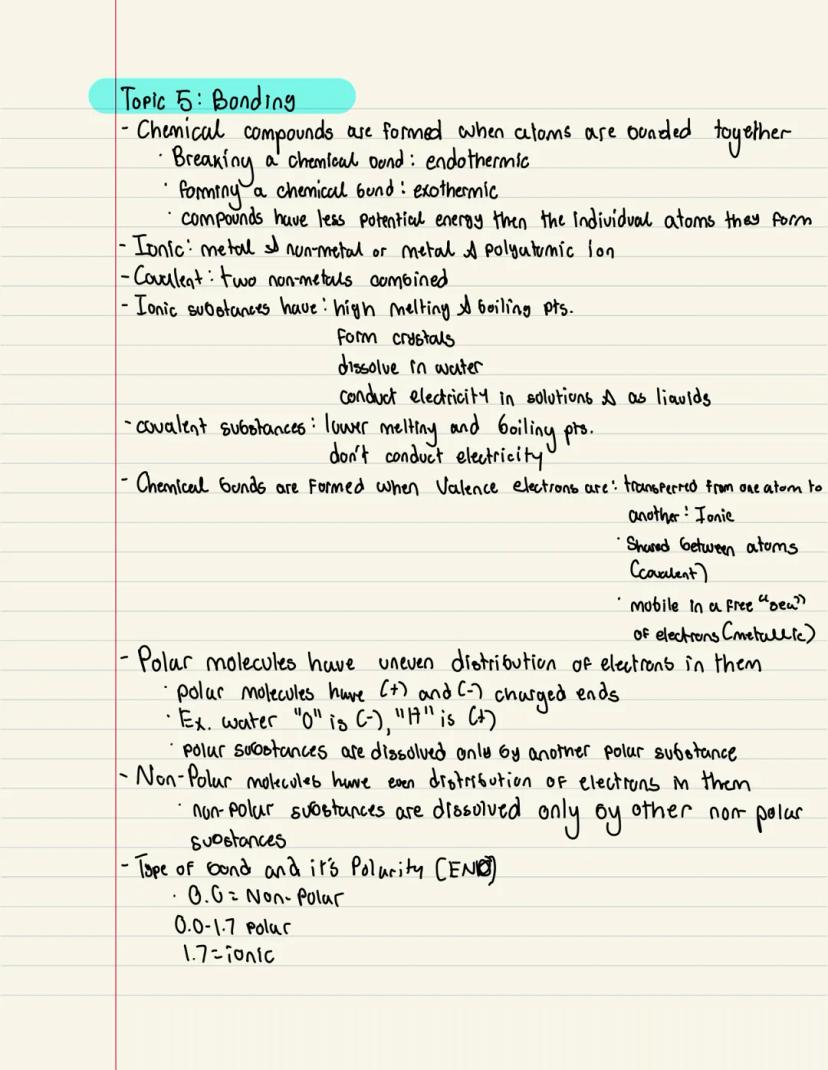 Topic 5: Bonding
- Chemical compounds are formed when atoms are bonded together
· Breaking a chemical bond: endothermic
· forming a chemical bond: exothermic
· compounds have less potential energy then the individual atoms they form
- Ionic: metal & non-metal or metal & polyatomic ion
- Covalent: two non-metals combined
- Ionic substances have: high melting & boiling pts.
form crystals
dissolve in water
conduct electricity in solutions & as liquids
- covalent substances: lower melting and boiling pts.
don't conduct electricity
- Chemical bonds are formed when valence electrons are: transferred from one atom to
another: Ionic
· Shared between atoms
(covalent)
· mobile in a free "sea"
of electrons (metallic)
- Polar molecules have uneven distribution of electrons in them
· polar molecules have (+) and (-) charged ends
· Ex. water "O" is (-), "H" is (+)
· polar substances are dissolved only by another polar substance
- Non-Polar molecules have even distribution of electrons in them
· non-polar substances are dissolved only by other non polar
substances
- Type of bond and it's Polarity (END)
· 0.0 = Non-Polar
0.0-1.7 polar
1.7=ionic